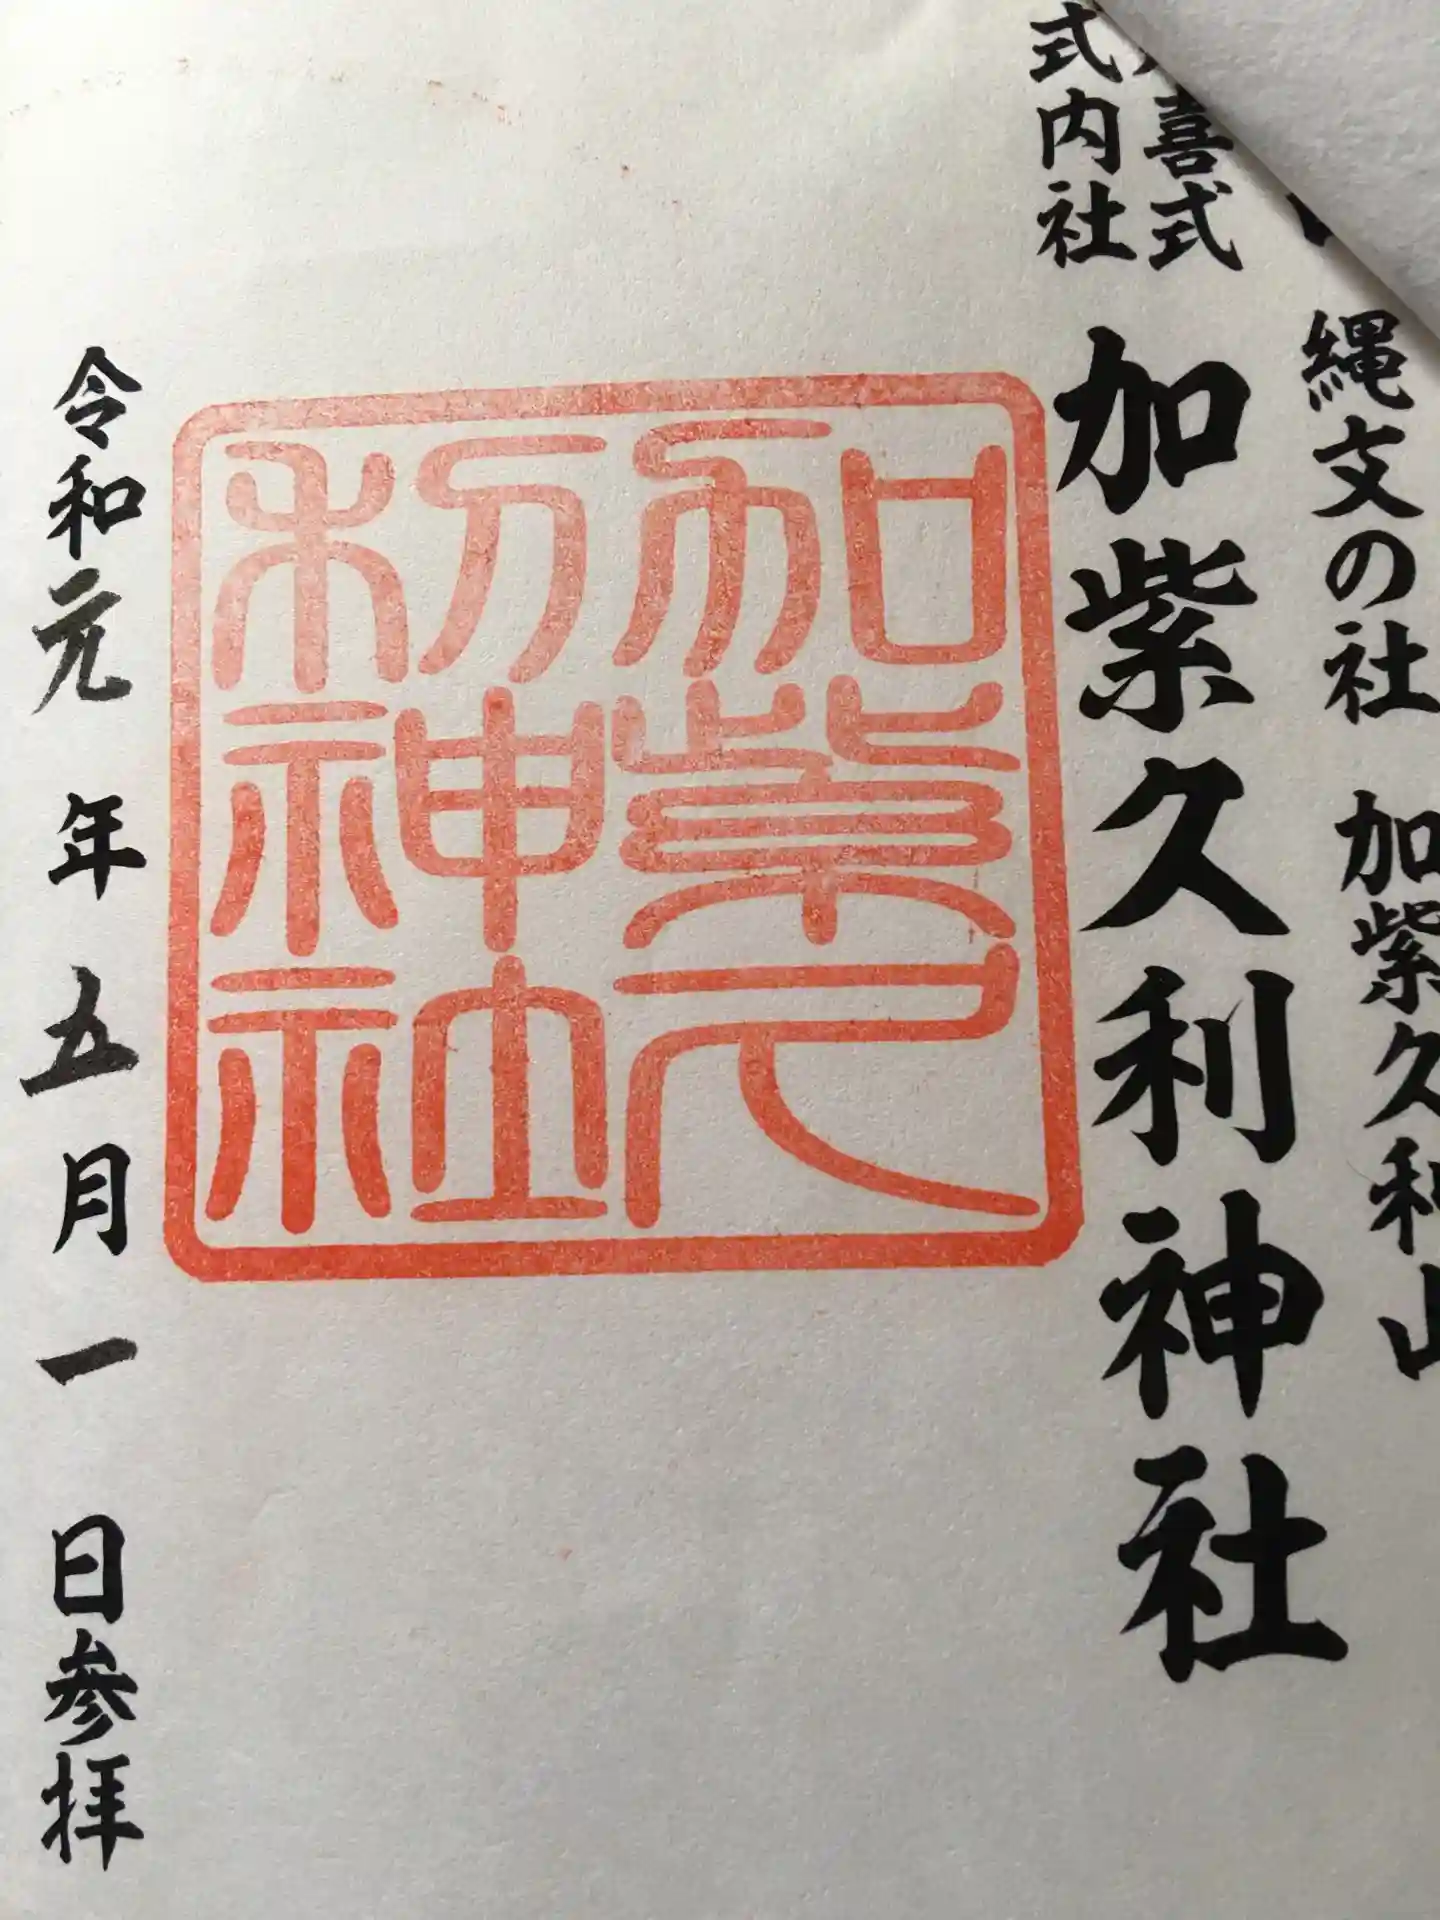 縄文の社 加紫久利山
喜式
式内社
加紫久利神社
加紫久利神社
令和元年五月一日参拝